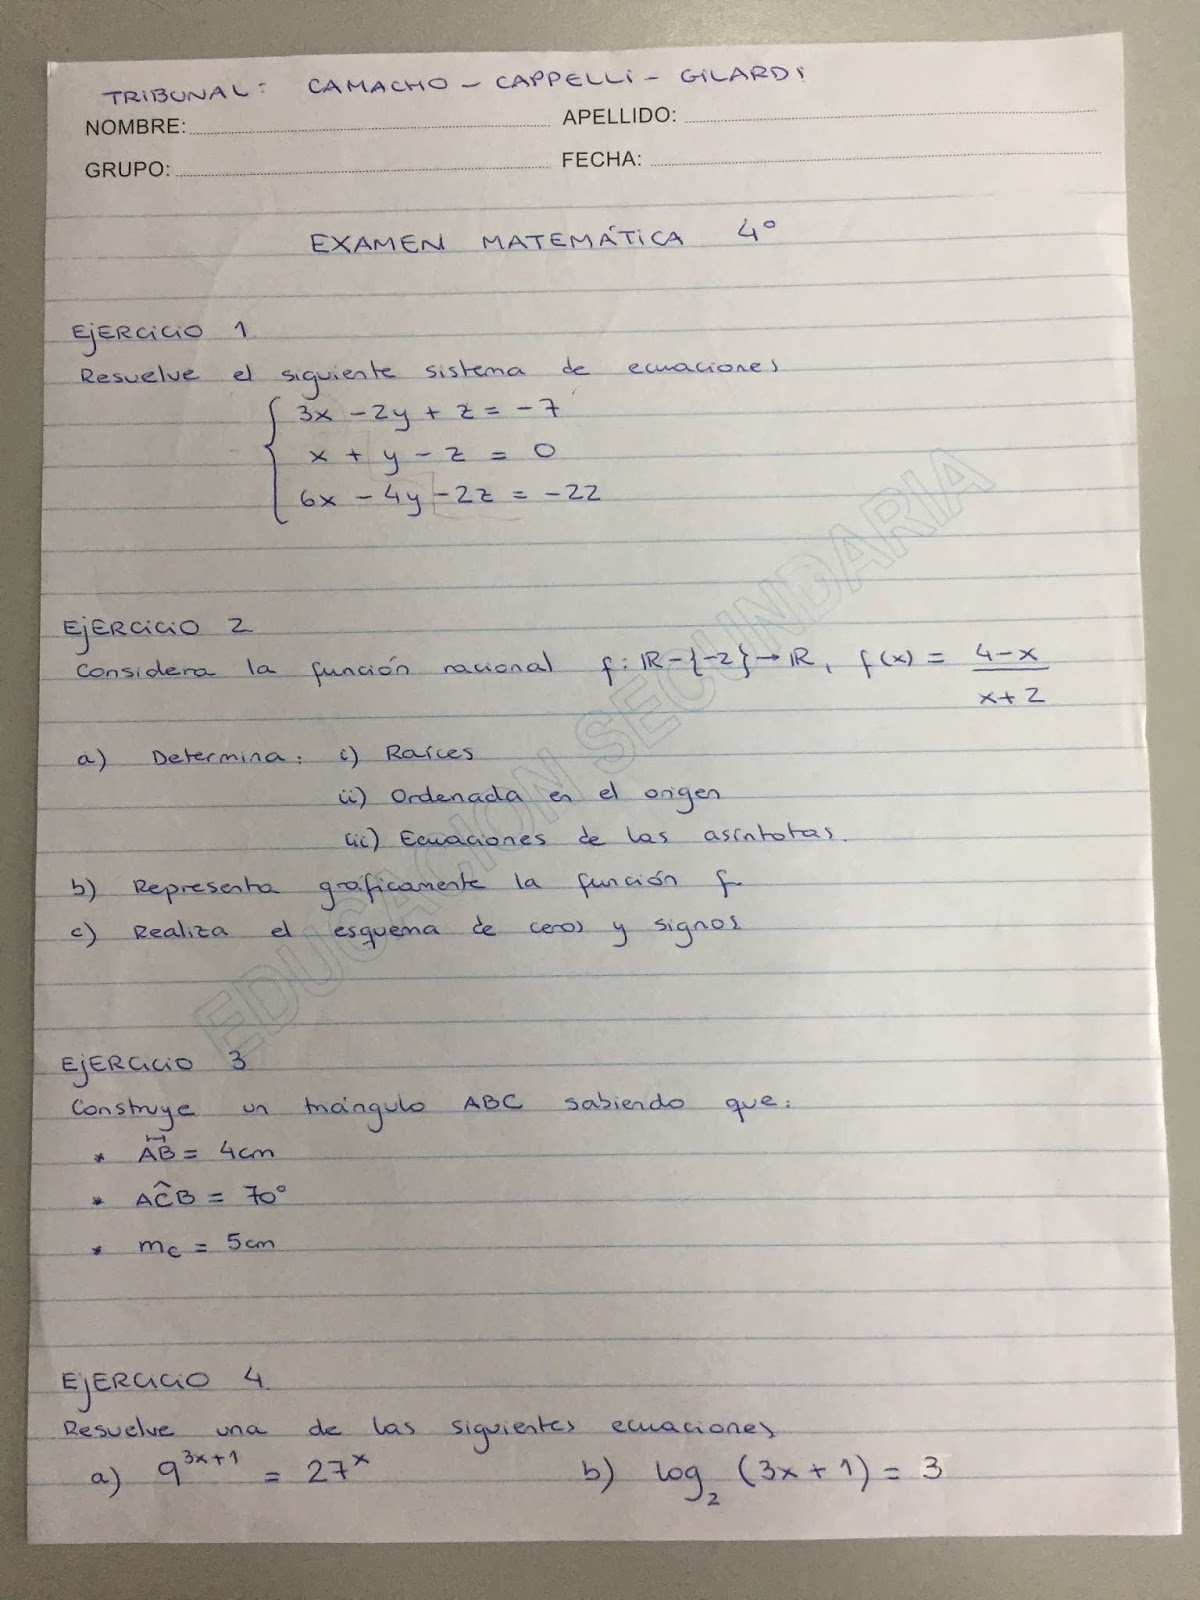 TRIBUNAL: CAMACHO - CAPPELLI - GILARDI
NOMBRE: APELLIDO:
GRUPO: FECHA:
EXAMEN MATEMÁTICA 4°
EJERCICIO 1
Resuelve el siguiente sistema de ecuaciones
3x - 2y + z = -7
x + y - z = 0
6x - 4y - 2z = -22
EJERCICIO 2
Considera la función racional f: ℝ-{-2}→ℝ, f(x) = 4-x
x+2
a) Determina: i) Raíces
ii) Ordenada en el origen
iii) Ecuaciones de las asíntotas.
b) Representa gráficamente la función f
c) Realiza el esquema de ceros y signos
EDUCACION SECUNDARIA
EJERCICIO 3
Construye un triángulo ABC sabiendo que:
* AB = 4cm
* AĈB = 70°
* m_c = 5cm
EJERCICIO 4
Resuelve una de las siguientes ecuaciones
a) 9^{3x+1} = 27^x b) log_2 (3x+1) = 3